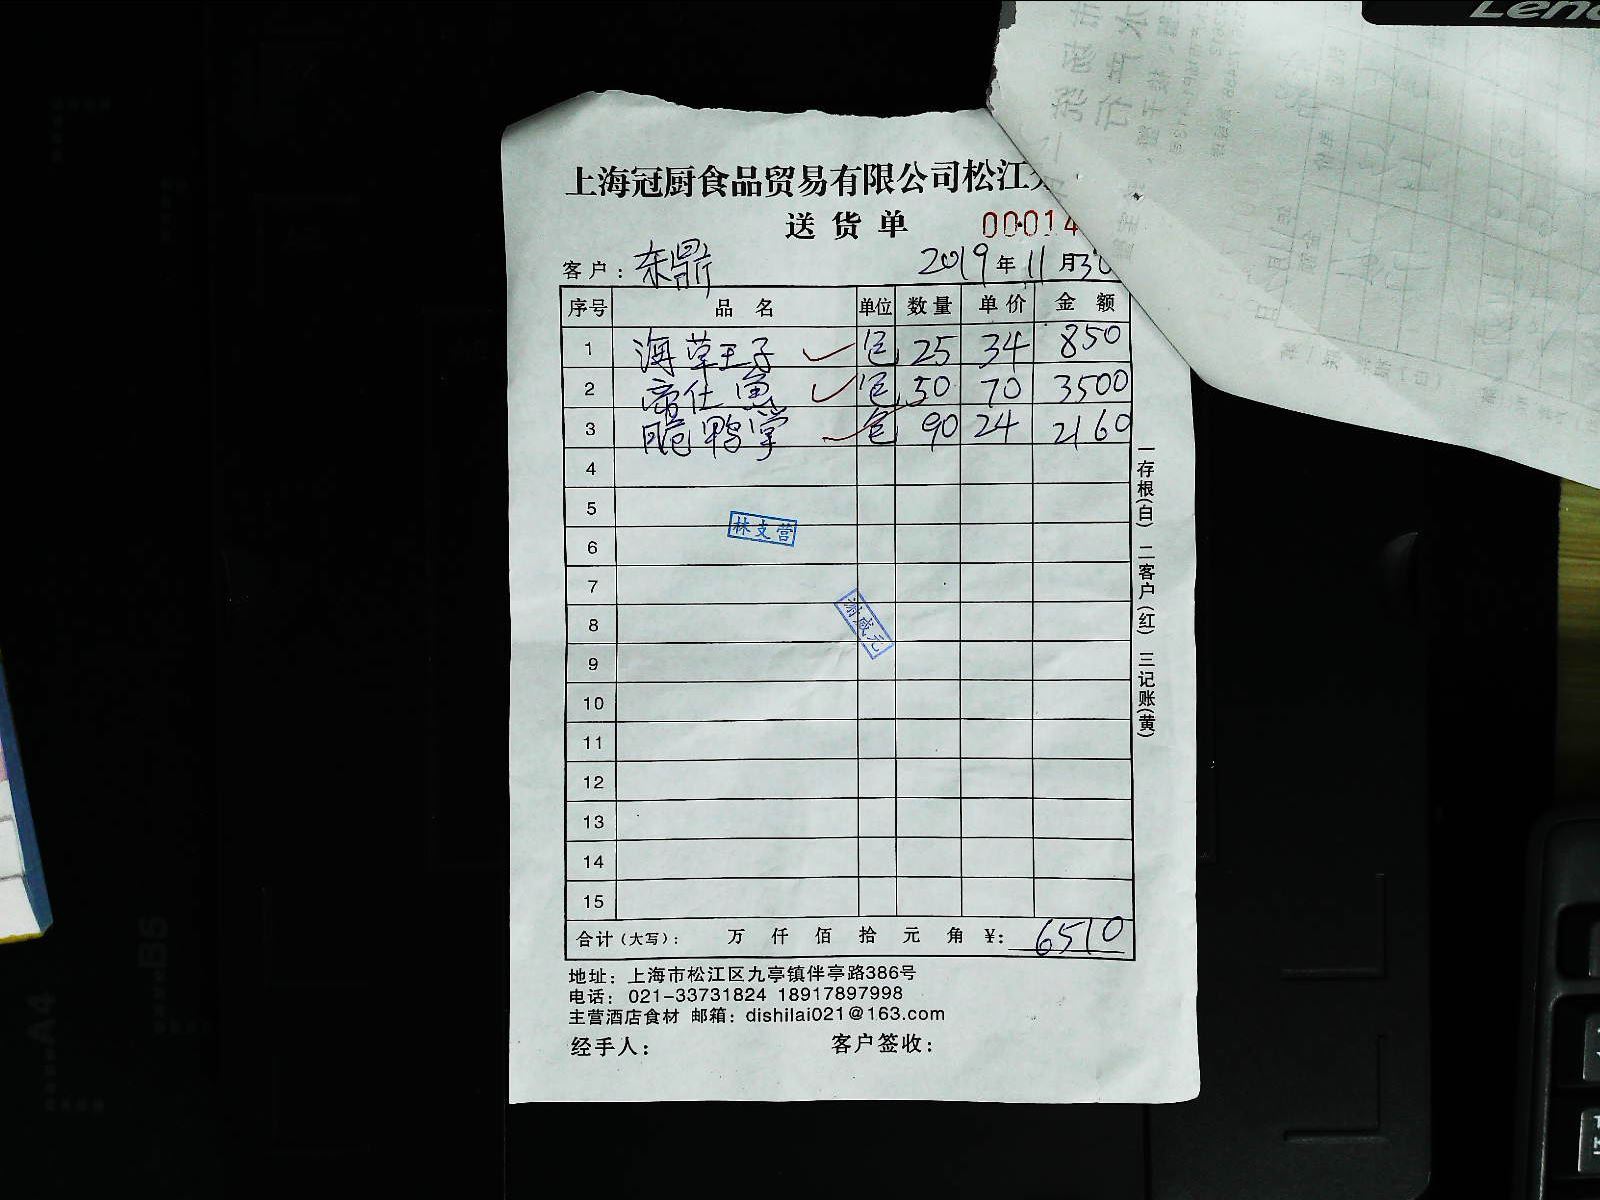 上海冠厨食品贸易有限公司松江
送货单 00014
客户：东鼎 2019年11月30
序号 品名 单位 数量 单价 金额
1 海草王子 包 25 34 850
2 帝仕鱼 包 50 70 3500
3 脆鸭掌 包 90 24 2160
4
5
林支营
6
7
8
9
10
11
12
13
14
15
合计（大写）： 万 仟 佰 拾 元 角 ¥： 6510
地址：上海市松江区九亭镇伴亭路386号
电话：021-33731824 18917897998
主营酒店食材 邮箱：dishilai021@163.com
经手人： 客户签收：
一存根（白） 二客户（红） 三记账（黄）
Leno
A4
B5